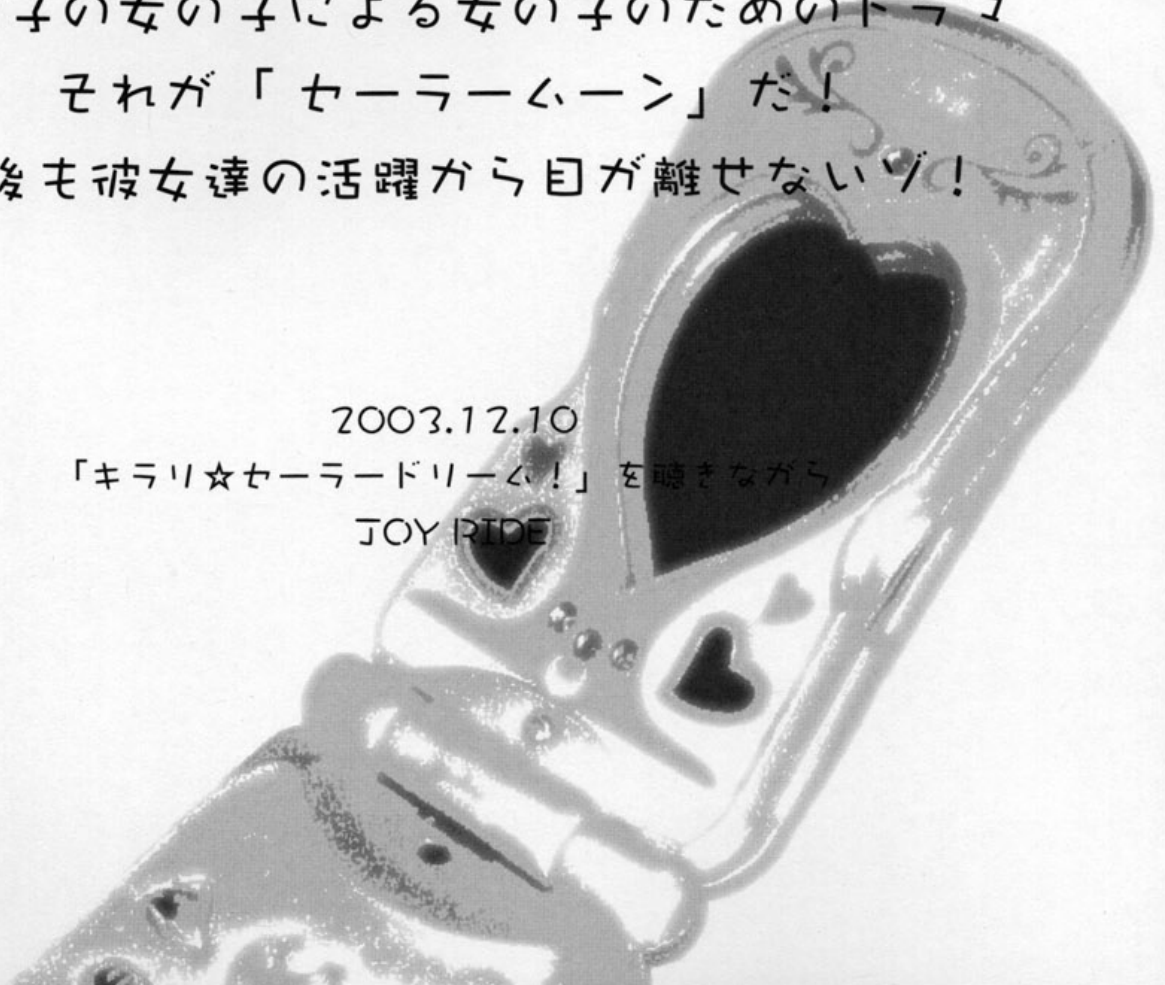 子の女の子による女の子のためのドラマ
それが「セーラームーン」だ！
後も彼女達の活躍から目が離せないゾ！
2003.12.10
「キラリ☆セーラードリーム！」を聴きながら
JOY RIDE